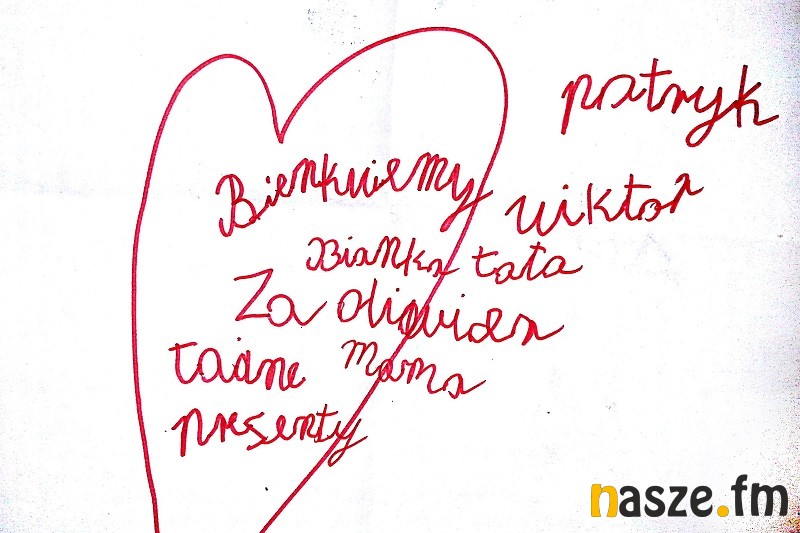 patryk
Bienkuiemy wiktor
Bianka tata
Za oliwien
tadne mama
presenty
nasze.fm